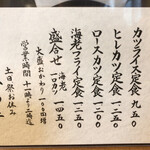 カツライス定食 九五〇
ヒレカツ定食 一三五〇
ロースカツ定食 一三五〇
海老フライ定食 一二五〇
盛合せ 海老 一口カツ 一四五〇
大盛おかわり 一〇〇円増
営業時間 十一時より二時迄
土日祭お休み